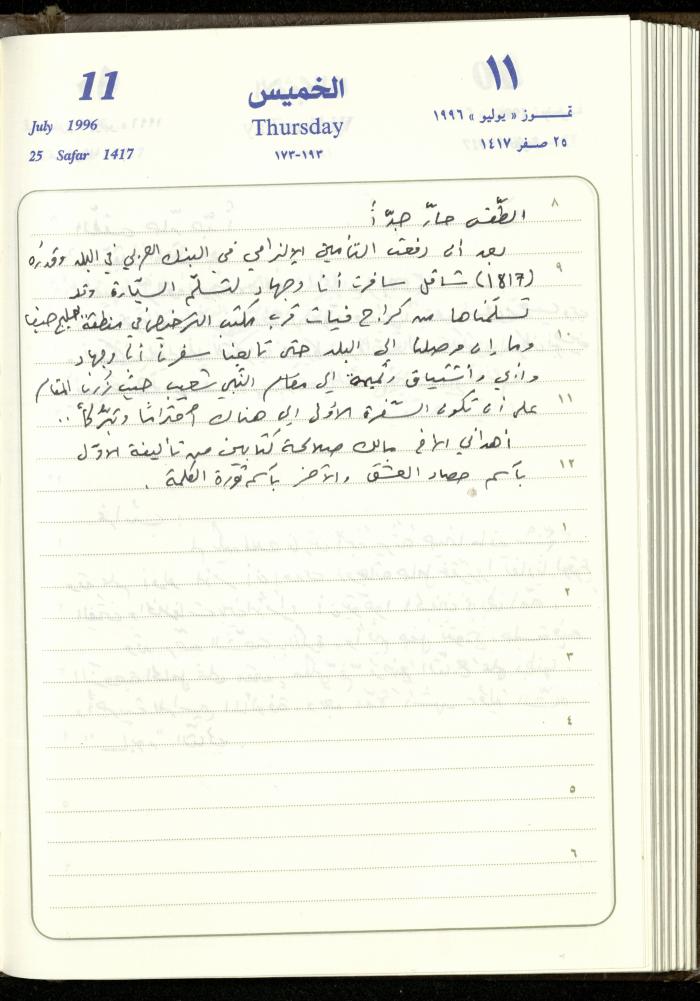 11
July 1996
25 Safar 1417
الخميس
Thursday
١٩٣-١٧٣
١١
تمـوز « يوليو » ١٩٩٦
٢٥ صفر ١٤١٧
٨
الطّقس حارّ جدّاً
بعد ان دفعت التأمين الإلزامي في البنك العربي في البلد وقدره
٩
(1817) شاقل سافرت أنا وجهاد لتسلّم السيّارة وقد
تسلّمناها من كراج فيات قرب مكتب الترخيص في منطقة خليج حيفا
١٠
وما إن وصلنا إلى البلد حتى تابعنا سفرنا أنا وجهاد
وابني وأشتياق إلى مقام النّبي شعيب حيث زرنا المقام
١١
على أن تكون السّفرة الأولى إلى هناك احتراماً وتبرّكاً ..
أهداني الأخ مالك صلالحة كتابين من تأليفه الأوّل
١٢
بآسم حصاد العشق والآخر بآسم ثورة الكلمة .
١
٢
٣
٤
٥
٦